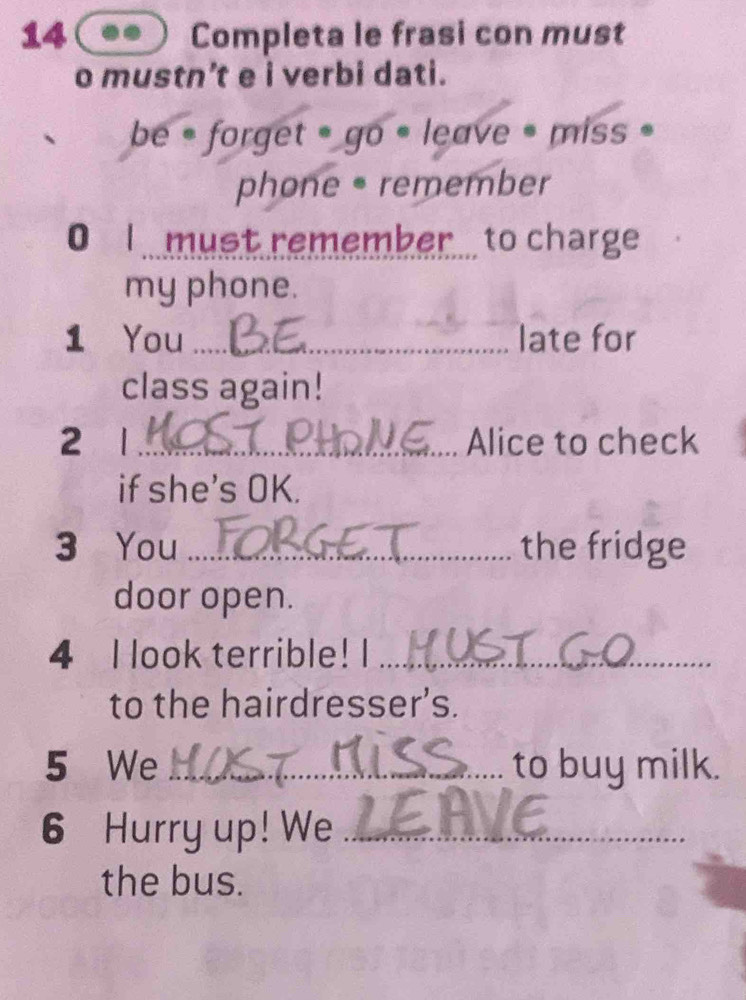 14 Completa le frasi con must
o mustn't e i verbi dati.
be • forget • go • leave • miss •
phone • remember
0 I must remember to charge
my phone.
1 You BE late for
class again!
2 I MOST PHONE Alice to check
if she's OK.
3 You FORGET the fridge
door open.
4 I look terrible! I MUST GO
to the hairdresser's.
5 We MOST MiSS to buy milk.
6 Hurry up! We LEAVE
the bus.